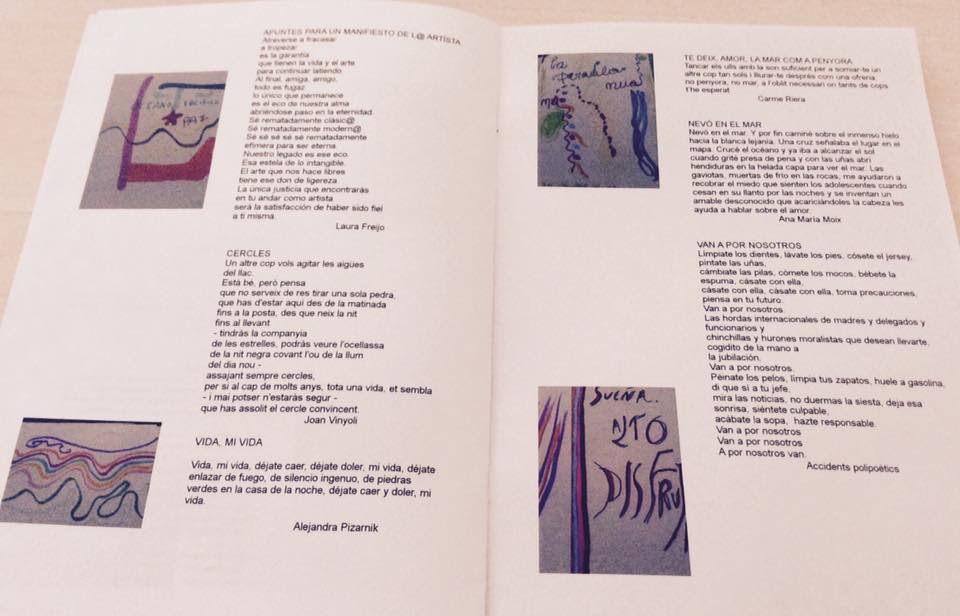 APUNTES PARA UN MANIFIESTO DE L@ ARTÍSTA
Atreverse a fracasar
a tropezar
es la garantía
que tienen la vida y el arte
para continuar latiendo.
Al final, amiga, amigo,
todo es fugaz
lo único que permanece
es el eco de nuestra alma
abriéndose paso en la eternidad.
Sé rematadamente clásic@
Sé rematadamente modern@
Sé sé sé sé sé rematadamente
efímera para ser eterna.
Nuestro legado es ese eco.
Esa estela de lo intangible.
El arte que nos hace libres
tiene ese don de ligereza.
La única justicia que encontrarás
en tu andar como artista
será la satisfacción de haber sido fiel
a ti misma.
Laura Freijo
PAZ
CERCLES
Un altre cop vols agitar les aigües
del llac.
Està bé, però pensa
que no serveix de res tirar una sola pedra,
que has d'estar aquí des de la matinada
fins a la posta, des que neix la nit
fins al llevant
- tindràs la companyia
de les estrelles, podràs veure l'ocellassa
de la nit negra covant l'ou de la llum
del dia nou -
assajant sempre cercles,
per si al cap de molts anys, tota una vida, et sembla
- i mai potser n'estaràs segur -
que has assolit el cercle convincent.
Joan Vinyoli
VIDA, MI VIDA
Vida, mi vida, déjate caer, déjate doler, mi vida, déjate
enlazar de fuego, de silencio ingenuo, de piedras
verdes en la casa de la noche, déjate caer y doler, mi
vida.
Alejandra Pizarnik
la
TE DEIX, AMOR, LA MAR COM A PENYORA
Tancar els ulls amb la son suficient per a somiar-te un
altre cop tan sols i lliurar-te després com una ofrena,
no penyora, no mar, a l'oblit necessari on tants de cops
t'he esperat
Carme Riera
NEVÓ EN EL MAR
Nevó en el mar. Y por fin caminé sobre el inmenso hielo
hacia la blanca lejanía. Una cruz señalaba el lugar en el
mapa. Crucé el océano y ya iba a alcanzar el sol
cuando grité presa de pena y con las uñas abrí
hendiduras en la helada capa para ver el mar. Las
gaviotas, muertas de frío en las rocas, me ayudaron a
recobrar el miedo que sienten los adolescentes cuando
cesan en su llanto por las noches y se inventan un
amable desconocido que acariciándoles la cabeza les
ayuda a hablar sobre el amor.
Ana María Moix
VAN A POR NOSOTROS
Límpiate los dientes, lávate los pies, cósete el jersey,
píntate las uñas,
cámbiate las pilas, cómete los mocos, bébete la
espuma, cásate con ella,
cásate con ella, cásate con ella, toma precauciones,
piensa en tu futuro.
Van a por nosotros.
Las hordas internacionales de madres y delegados y
funcionarios y
chinchillas y hurones moralistas que desean llevarte,
cogidito de la mano a
la jubilación.
Van a por nosotros.
Péinate los pelos, limpia tus zapatos, huele a gasolina,
di que sí a tu jefe,
mira las noticias, no duermas la siesta, deja esa
sonrisa, siéntete culpable,
acábate la sopa, hazte responsable.
Van a por nosotros
Van a por nosotros
A por nosotros van.
Accidents polipoètics
SUEÑA.
DISFRU